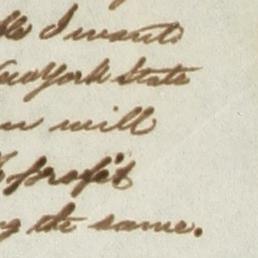 I want
New York State
will
profit
the same.